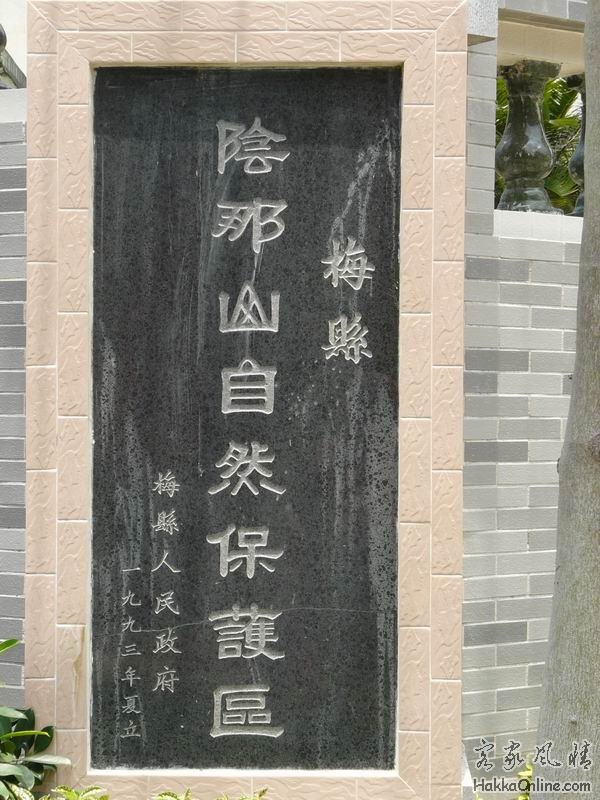 梅縣
陰那山自然保護區
梅縣人民政府
一九九三年夏立
客家風情
HakkaOnline.com